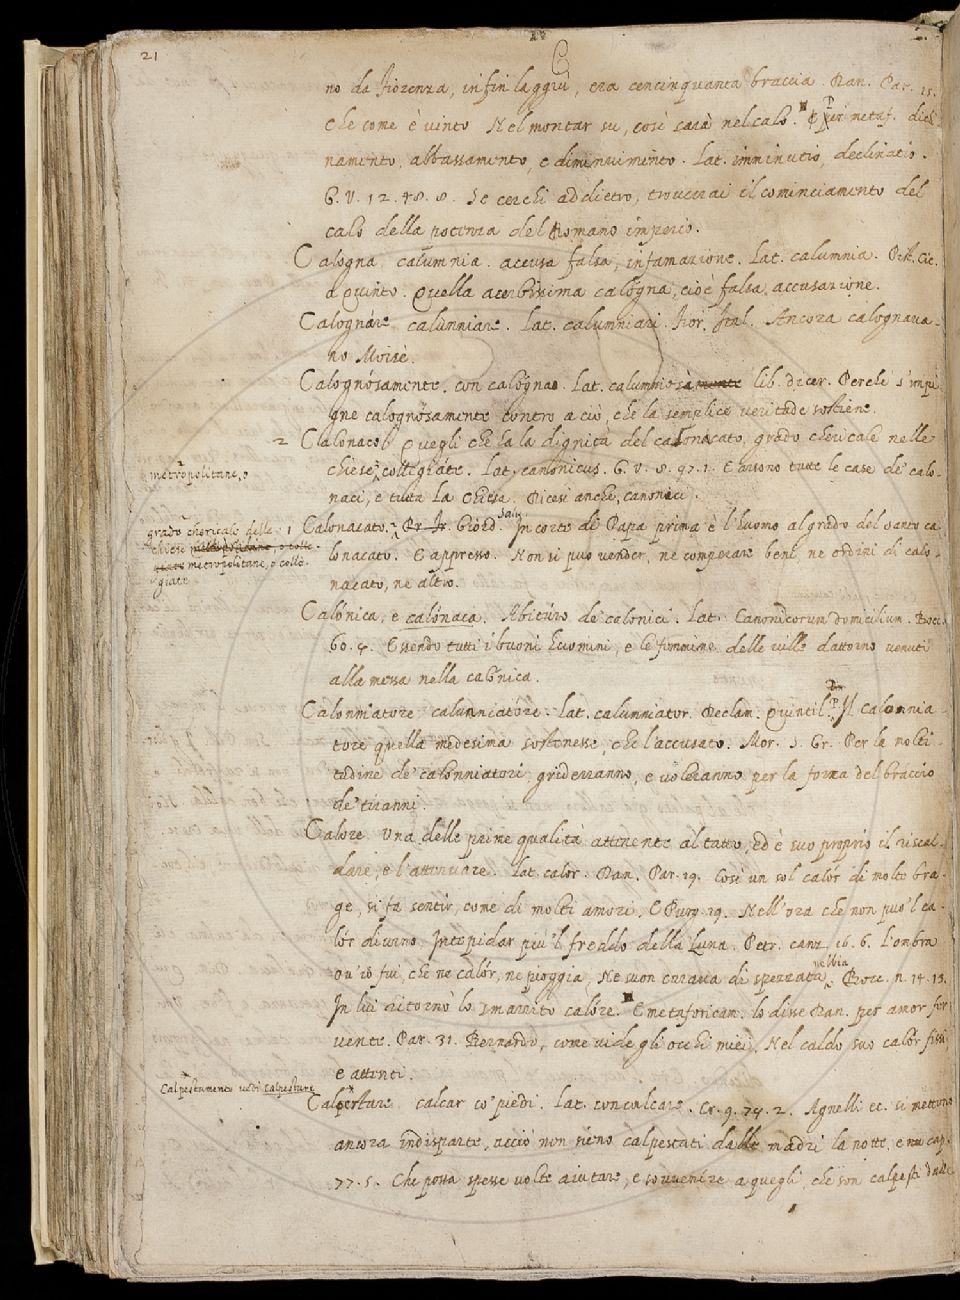 21
C
no da Fiorenza, infin laggiù, era cencinquanta braccia. Dan. Par. 15.
che come è vinto Nel montar su, così sarà nel calo. Per metaf. dichi
namento, abbassamento, e diminuimento. Lat. imminutio, declinatio.
G. V. 12. 48. 8. Se cerchi addietro, troverrai il cominciamento del
calo della potenza del Romano imperio.
Calogna. calumnia. accusa falsa, infamazione. Lat. calumnia. Pist. Cic.
a Quinto. Quella acerbissima calogna, cioè falsa accusazione.
Calognáre calunniare. Lat. calumniari. Fior. Ital. Ancora calognava-
no Moisè.
Calognósamente. con calógna. Lat. calumniosa lib. dicer. Perchè s'impi
gne calognósamente contro a ciò, che la semplice veritade sostiene.
2 Calonaco Quegli che ha la dignità del calonacato, grado chericale nelle
chiese collegiate. Lat. canonicus. G. V. 8. 97. 1. E arsono tutte le case de' calo-
metropolitane, o
naci, e tutta la chiesa. Dicesi anche, canonaci.
grado chericale delle 1
chiese metropolitane, o colle-
giate metropolitane, o colle-
giate
Calonacato. Fr. Jr. Giord. Salv. In corte di Papa prima è l'huomo al grado del santo ca
lonacato. E appresso. Non si può vender, ne comperare beni, ne ordini di calo-
nacato, ne altro.
Calónica, e calónaca. Abitúro de' calonici. Lat. Canonicorum domicilium. Bocc.
60. 4. Essendo tutti i buoni huomini, e le femmine delle ville dattorno venuti
alla messa nella calónica.
Calonniatore calunniatóre. Lat. calunniator. Declam. Quintil. P. Il calonnia-
tore quella medesima sostenesse, che l'accusato. Mor. S. Gr. Per la molti-
tudine de' calonniatori grideranno, e voleranno per la forza del bráccio
de' tiranni.
Calore Una delle prime qualità attenente al tatto, ed è suo proprio il riscal-
dare, e l'attenuare. Lat. calor. Dan. Par. 19. Così un sol calór di molte bra-
ge, si fa sentir, come di molti amori. E Purg. 19. Nell'ora che non può 'l ca-
lór diurno Intepidar più 'l freddo della Luna. Petr. canz. 16. 6. L'ombra
ov'io fui, che ne calór, ne pioggia, Ne suon curava di spezzata nebbia. Bocc. n. 14. 13.
In lui ritornò lo smarrito calóre. E metaforicam. lo disse Dan. per amor fer
vente. Par. 31. Bernardo, come vide gli occhi miei Nel caldo suo calór fissi,
e attenti.
Calpestamento vedi calpestare
Calpestare calcar co' piedi. Lat. conculcare. Cr. 9. 74. 2. Agnelli ec. si mettono
ancora indisparte, acciò non sieno calpestati dalle madri la notte, e nu cap.
77. 5. Che possa spesse volte aiutare, e sovvenire a quegli, che son calpesti